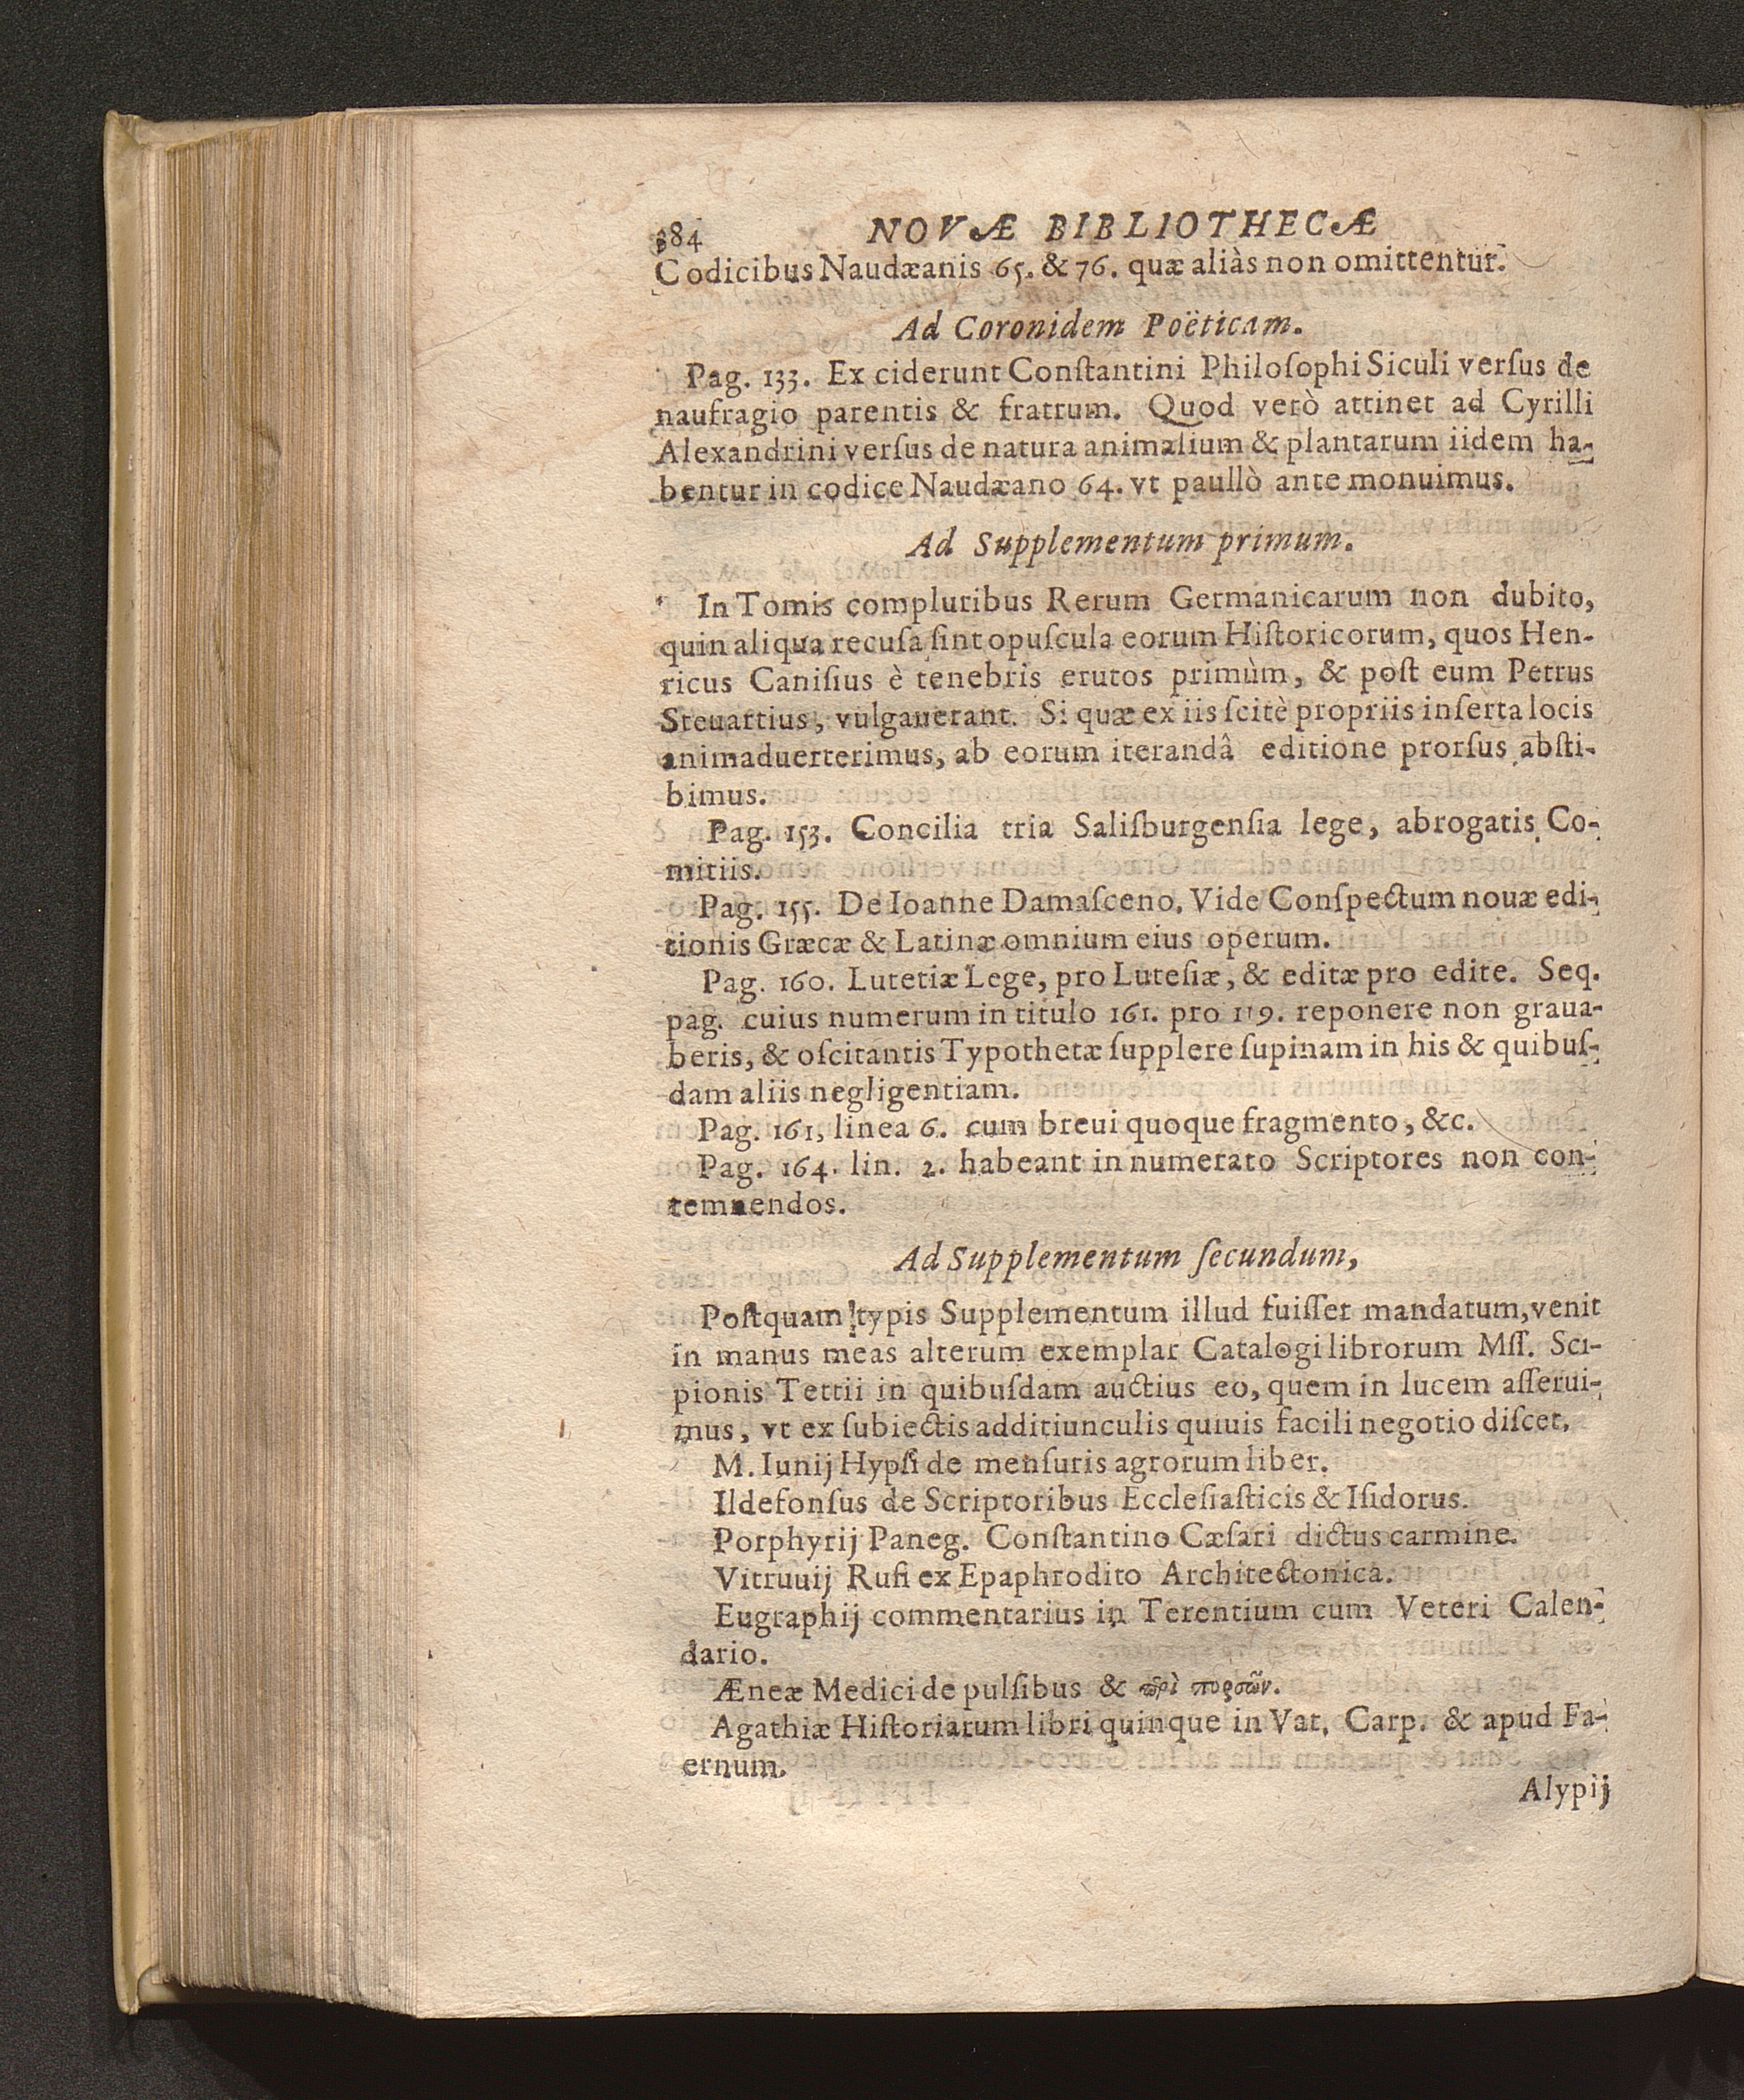 384 NOVÆ BIBLIOTHECÆ
Codicibus Naudæanis 65. & 76. quæ aliàs non omittentur.
Ad Coronidem Poëticam.
Pag. 133. Ex ciderunt Conſtantini Philoſophi Siculi verſus de
naufragio parentis & fratrum. Quod verò attinet ad Cyrilli
Alexandrini verſus de natura animalium & plantarum iidem ha-
bentur in codice Naudæano 64. vt paullò ante monuimus.
Ad Supplementum primum.
In Tomis compluribus Rerum Germanicarum non dubito,
quin aliqua recuſa ſint opuſcula eorum Hiſtoricorum, quos Hen-
ricus Caniſius è tenebris erutos primùm, & poſt eum Petrus
Steuartius, vulgauerant. Si quæ ex iis ſcitè propriis inſerta locis
animaduerterimus, ab eorum iterandâ editione prorſus abſti-
bimus.
Pag. 153. Concilia tria Saliſburgenſia lege, abrogatis Co-
mitiis.
Pag. 155. De Ioanne Damaſceno. Vide Conſpectum nouæ edi-
tionis Græcæ & Latinæ omnium eius operum.
Pag. 160. Lutetiæ Lege, pro Luteſiæ, & editæ pro edite. Seq.
pag. cuius numerum in titulo 161. pro 119. reponere non graua-
beris, & oſcitantis Typothetæ ſupplere ſupinam in his & quibuſ-
dam aliis negligentiam.
Pag. 161, linea 6. cum breui quoque fragmento, &c.
Pag. 164. lin. 2. habeant in numerato Scriptores non con-
temnendos.
Ad Supplementum ſecundum,
Poſtquam typis Supplementum illud fuiſſet mandatum, venit
in manus meas alterum exemplar Catalogi librorum Mſſ. Sci-
pionis Tettii in quibuſdam auctius eo, quem in lucem aſſerui-
mus, vt ex ſubiectis additiunculis quiuis facili negotio diſcet,
M. Iunij Hypſi de menſuris agrorum liber.
Ildefonſus de Scriptoribus Eccleſiaſticis & Iſidorus.
Porphyrij Paneg. Conſtantino Cæſari dictus carmine.
Vitruuij Rufi ex Epaphrodito Architectonica.
Eugraphij commentarius in Terentium cum Veteri Calen-
dario.
Æneæ Medici de pulſibus & περὶ
Agathiæ Hiſtoriarum libri quinque in Vat. Carp. & apud Fa-
ernum.
Alypij